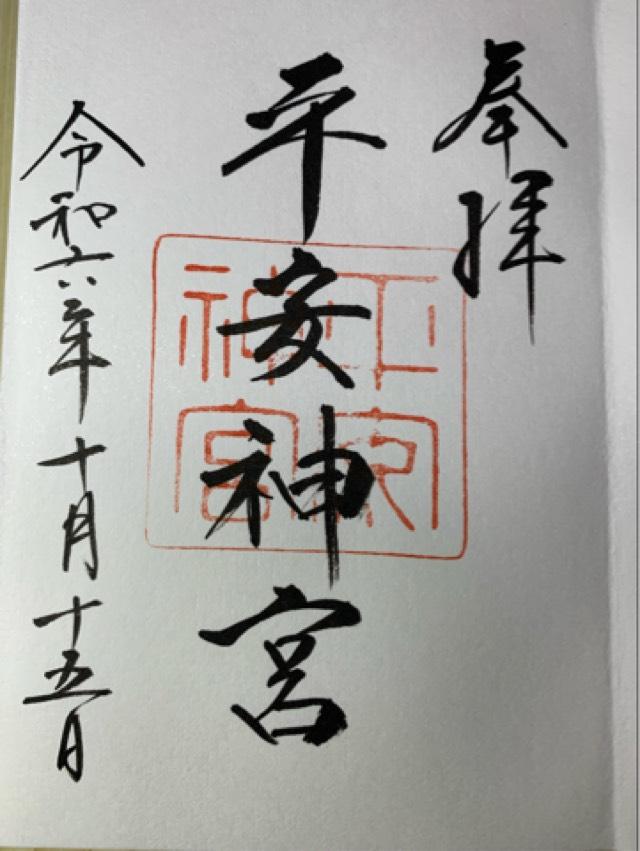 奉拝
平安神宮
令和六年十月十五日
平安神宮